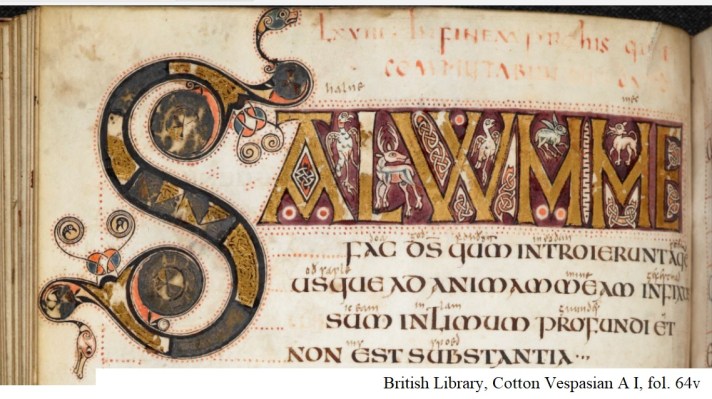 LXVIII · IN FINEM PRO HIS QUI
COMMUTABUN
halne mec
SALVVMME
FAC DS QUM INTROIERUNT AQE
oð sawle mine
USQUE AD ANIMAM MEAM INFIXU
ic eam in lam
SUM IN LIMUM PROFUNDI ET
NON EST SUBSTANTIA···
British Library, Cotton Vespasian A I, fol. 64v